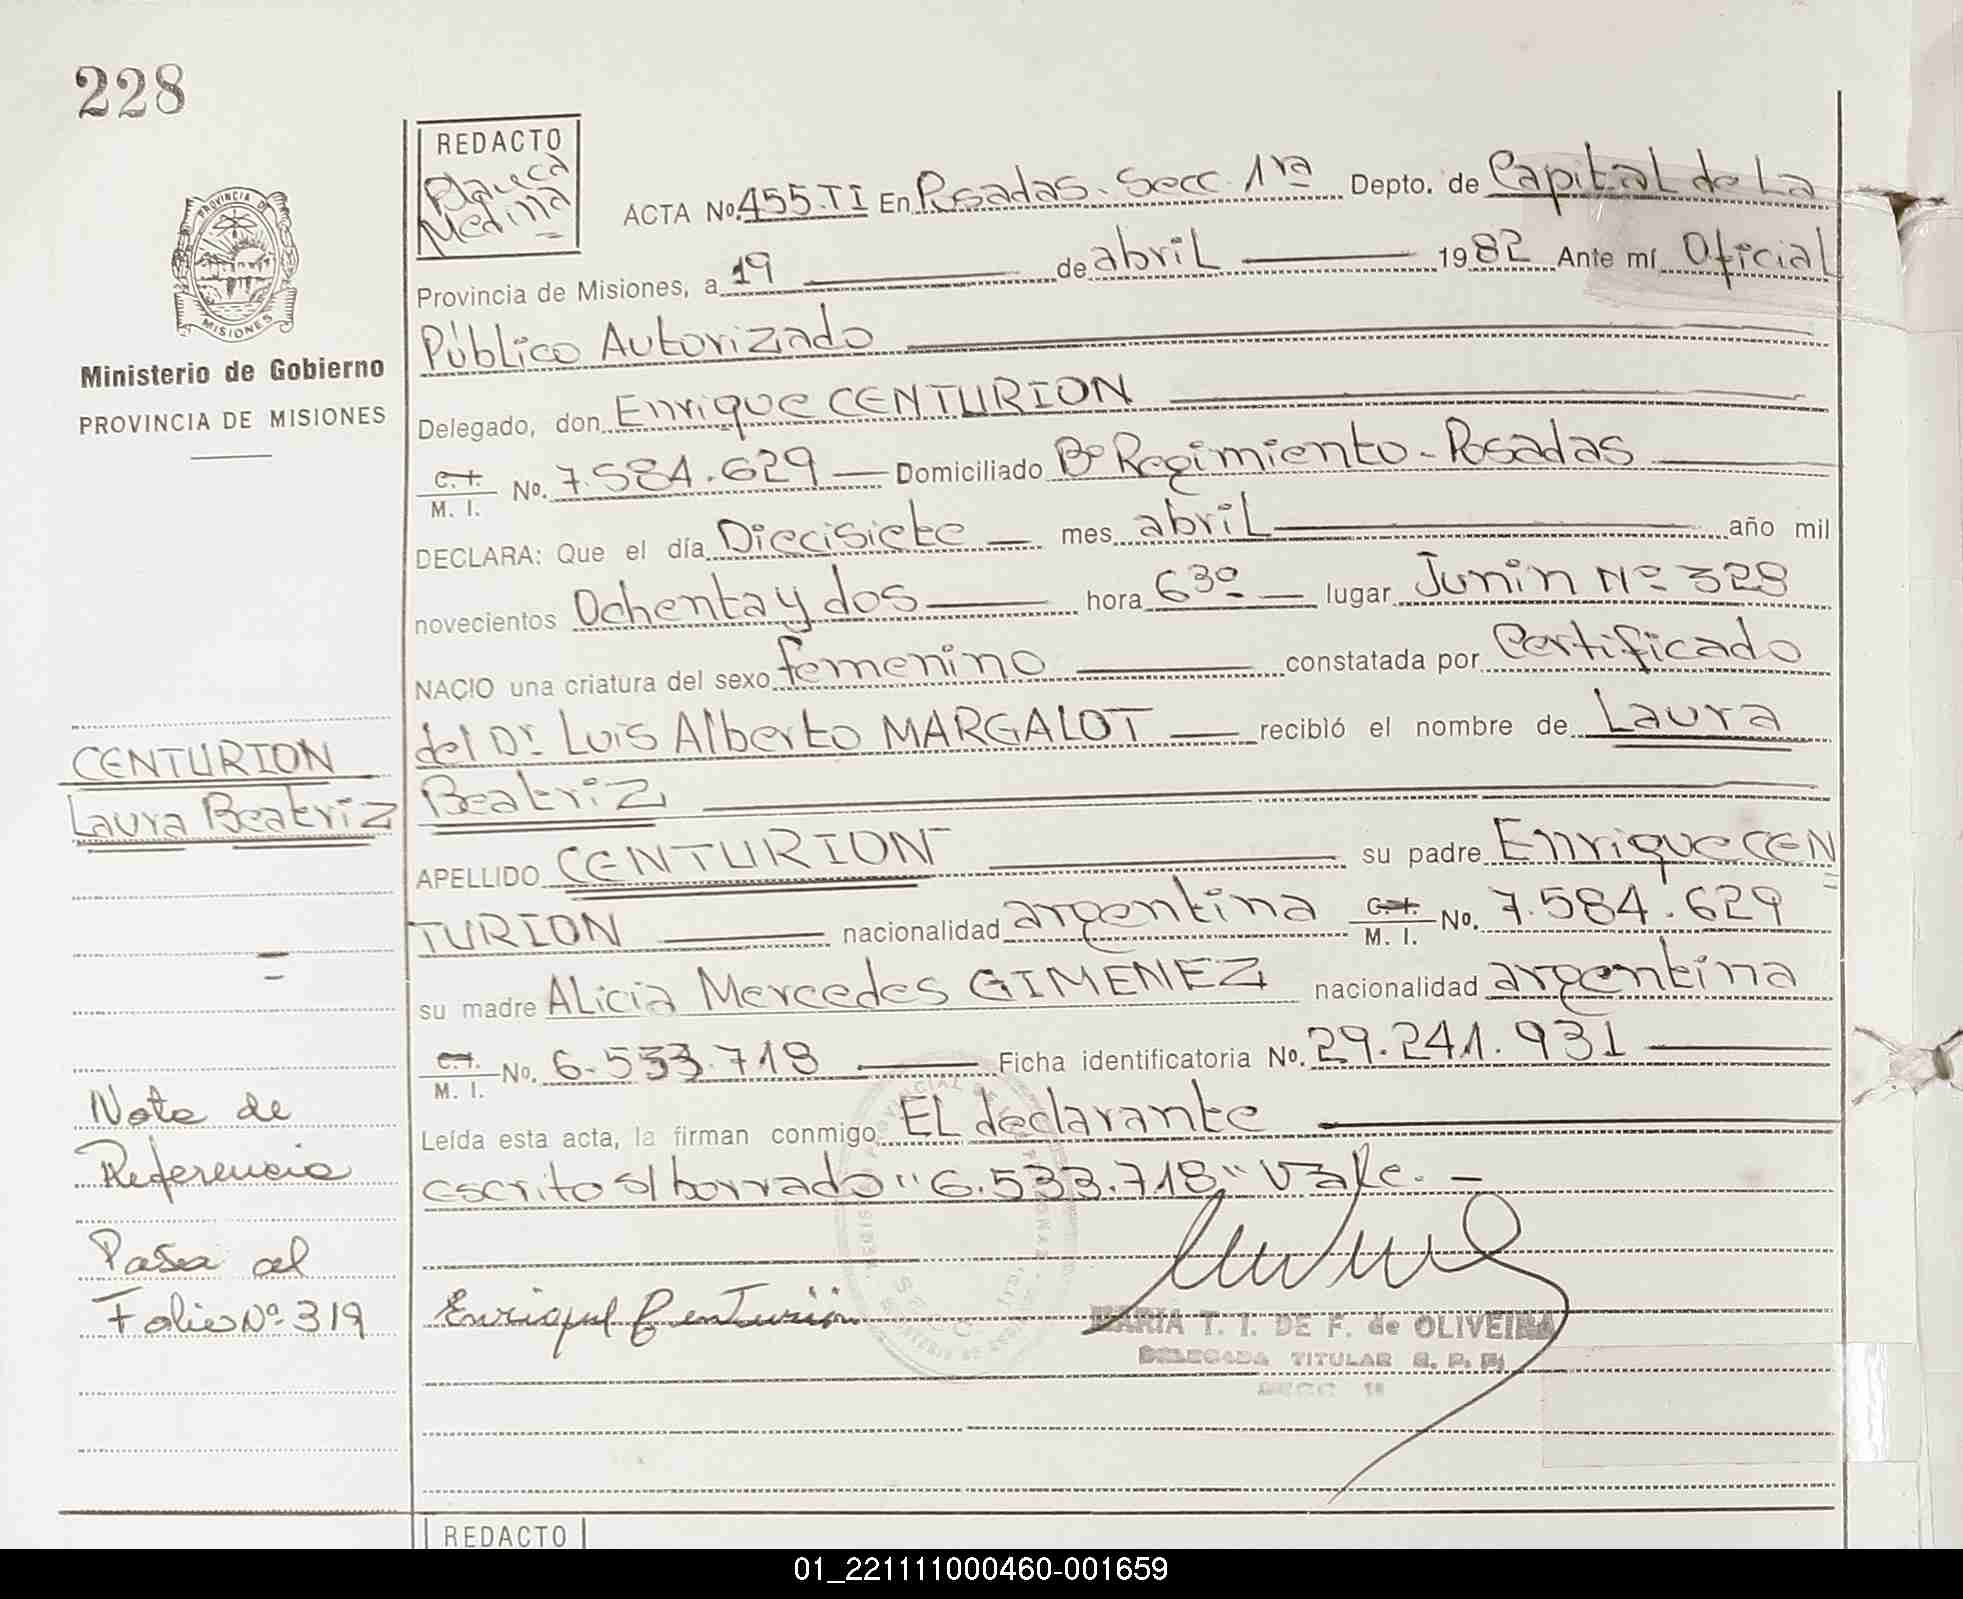 228
REDACTO
Blanca
Medina
ACTA No. 455.TI En Posadas. Secc. 1ra Depto. de Capital de La
Provincia de Misiones, a 19 de abril 1982 Ante mí Oficial
Público Autorizado
Delegado, don Enrique CENTURION
C. I. M. I. No. 7.584.629 Domiciliado Bº Regimiento - Posadas
DECLARA: Que el día Diecisiete mes abril año mil
novecientos Ochenta y dos hora 6 30 lugar Junin Nº 328
NACIO una criatura del sexo femenino constatada por Certificado
del Dr Luis Alberto MARGALOT recibió el nombre de Laura
Beatriz
APELLIDO CENTURION su padre Enrique CEN
TURION nacionalidad argentina C. I. M. I. No. 7.584.629
su madre Alicia Mercedes GIMENEZ nacionalidad argentina
C. I. M. I. No. 6.533.718 Ficha identificatoria No. 29.241.931
Leída esta acta, la firman conmigo, EL declarante
escrito s/ borrado "6.533.718" Vale. -
Enrique Centurión
MARIA T. I. DE F. de OLIVEIRA
DELEGADA TITULAR R. P. P.
SECC 1ª
PROVINCIA DE
MISIONES
Ministerio de Gobierno
PROVINCIA DE MISIONES
CENTURION
Laura Beatriz
Nota de
Referencia
Pasa al
Folio Nº 319
REDACTO
01_221111000460-001659